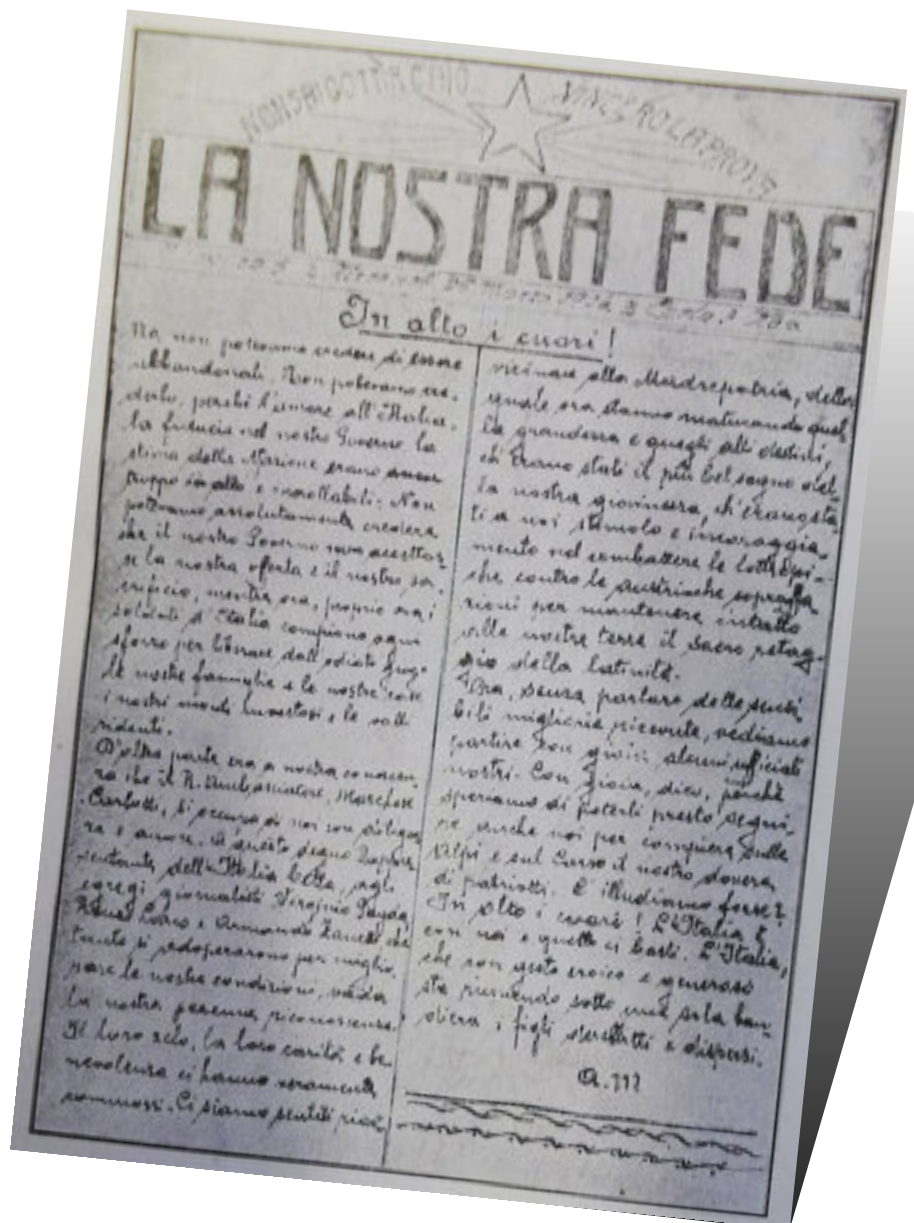 NON SBIGOTTIR CH'IO
VINCERÒ LA PROVA
LA NOSTRA FEDE
In alto i cuori!
No, non potevamo credere di essere
abbandonati. Non potevamo cre-
derlo, perchè l'amore all'Italia,
la fiducia nel nostro Governo la
stima della Nazione erano
troppo in alto e incrollabili. Non
potevamo assolutamente credere
che il nostro Governo non accettas-
se la nostra offerta e il nostro sa-
crificio, mentre ora, proprio ora i
soldati d'Italia compiono ogni
sforzo per liberare dall'odiato giogo
le nostre famiglie e le nostre case
i nostri monti maestosi e le valli
ridenti.
D'altra parte era a nostra conoscen-
za che il R. Ambasciatore, Marchese
Carlotti, si occupa di noi con
e amore. A questo degno rappre-
sentante dell'Italia agli
egregi giornalisti Virginio Gayda
e Armando Zanetti che
tanto si adoperarono per miglio-
rare le nostre condizioni, vada
la nostra perenne riconoscenza.
Il loro zelo, la loro carità e be-
nevolenza ci hanno veramente
commossi. Ci siamo sentiti
vicinare alla Madrepatria, della
quale ora stanno maturando quel-
la grandezza e quegli alti destini,
ch'erano stati il più bel sogno del-
la nostra giovinezza, ch'erano sta-
ti a noi stimolo e incoraggia-
mento nel combattere le lotte
contro le austriache sopraffa-
zioni per mantenere intatto
alle nostre terre il sacro retag-
gio della latinità.
Ora, senza parlare delle sensi-
bili migliorie ricevute, vediamo
partire con gioia alcuni ufficiali
nostri. Con gioia, dico, perchè
speriamo di poterli presto segui-
re anche noi per compiere sulle
Alpi e sul Carso il nostro dovere
di patriotti. C'illudiamo forse?
In alto i cuori! L'Italia è
con noi e quello ci basti. L'Italia,
che con gesto eroico e generoso
sta riunendo sotto una sola ban-
diera i figli derelitti e dispersi.
A. M